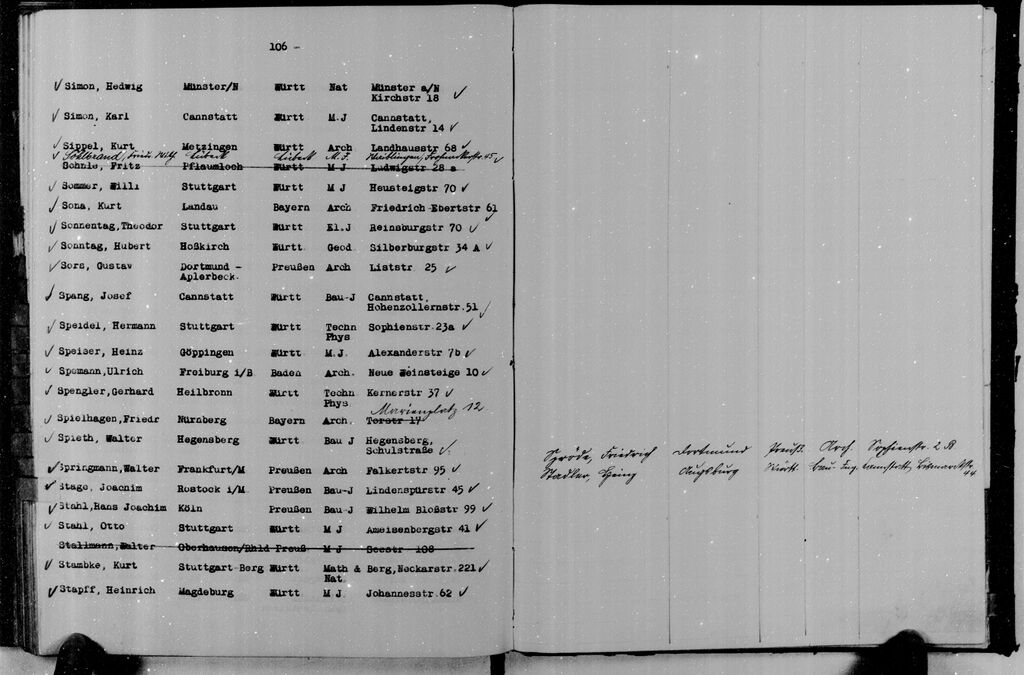 106 -
✓ Simon, Hedwig Münster/N Württ Nat Münster a/N
Kirchstr 18 ✓
✓ Simon, Karl Cannstatt Württ M.J Cannstatt,
Lindenstr 14 ✓
✓ Sippel, Kurt Metzingen Württ Arch Landhausstr 68 ✓
✓ Lübeck Lübeck M.J. 45 ✓
Söhnle, Fritz Pflaumloch Württ M J Ludwigstr 28 a
✓ Sommer, Willi Stuttgart Württ M J Heusteigstr 70 ✓
✓ Sona, Kurt Landau Bayern Arch Friedrich Ebertstr 61 ✓
✓ Sonnentag,Theodor Stuttgart Württ El.J Reinsburgstr 70 ✓
✓ Sonntag, Hubert Hoßkirch Württ. Geod Silberburgstr 34 A ✓
✓ Sors, Gustav Dortmund - Preußen Arch Liststr 25 ✓
Aplerbeck.
✓ Spang, Josef Cannstatt Württ Bau-J Cannstatt,
Hohenzollernstr.51 ✓
✓ Speidel, Hermann Stuttgart Württ Techn Sophienstr.23a ✓
Phys
✓ Speiser, Heinz Göppingen Württ M.J. Alexanderstr 7b ✓
✓ Spemann,Ulrich Freiburg i/B Baden Arch. Neue Weinsteige 10 ✓
✓ Spengler,Gerhard Heilbronn Württ Techn Kernerstr 37 ✓
Phys
Marienplatz 12
✓ Spielhagen,Friedr Nürnberg Bayern Arch. Torstr 17
✓ Spieth, Walter Hegensberg Württ Bau J Hegensberg,
Schulstraße ✓
✓ Springmann,Walter Frankfurt/M Preußen Arch Falkertstr 95 ✓
✓ Stage, Joachim Rostock i/M Preußen Bau-J Lindenspürstr 45 ✓
✓ Stahl,Hans Joachim Köln Preußen Bau-J Wilhelm Bloßstr 99 ✓
✓ Stahl, Otto Stuttgart Württ M J Ameisenbergstr 41 ✓
Stallmann,Walter Oberhausen/Rhld Preuß M J Seestr 108
✓ Stambke, Kurt Stuttgart-Berg Württ Math & Berg,Neckarstr.221 ✓
Nat
✓ Stapff, Heinrich Magdeburg Württ M J Johannesstr.62 ✓
Spröde, Friedrich Dortmund Preuß. Arch. Sophienstr. 2 B
Stadler, Heinz Augsburg Württ Bau-Ing. Cannstatt, Bismarckstr.
44